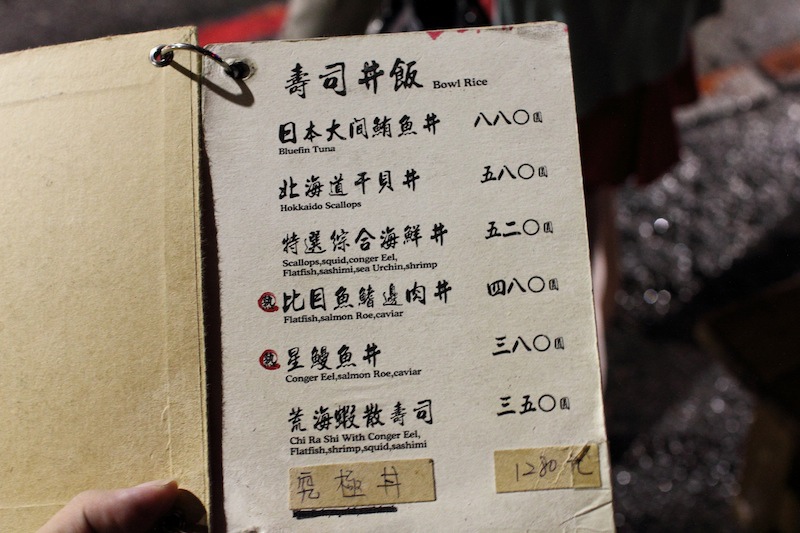 壽司丼飯 Bowl Rice
日本大间鮪魚丼 八八〇圓
Bluefin Tuna
北海道干貝丼 五八〇圓
Hokkaido Scallops
特選綜合海鮮丼 五二〇圓
Scallops,squid,conger Eel,
Flatfish,sashimi,sea Urchin,shrimp
比目魚鰭邊肉丼 四八〇圓
Flatfish,salmon Roe,caviar
星鰻魚丼 三八〇圓
Conger Eel,salmon Roe,caviar
荒海蝦散壽司 三五〇圓
Chi Ra Shi With Conger Eel,
Flatfish,shrimp,squid,sashimi
究極丼 1280元